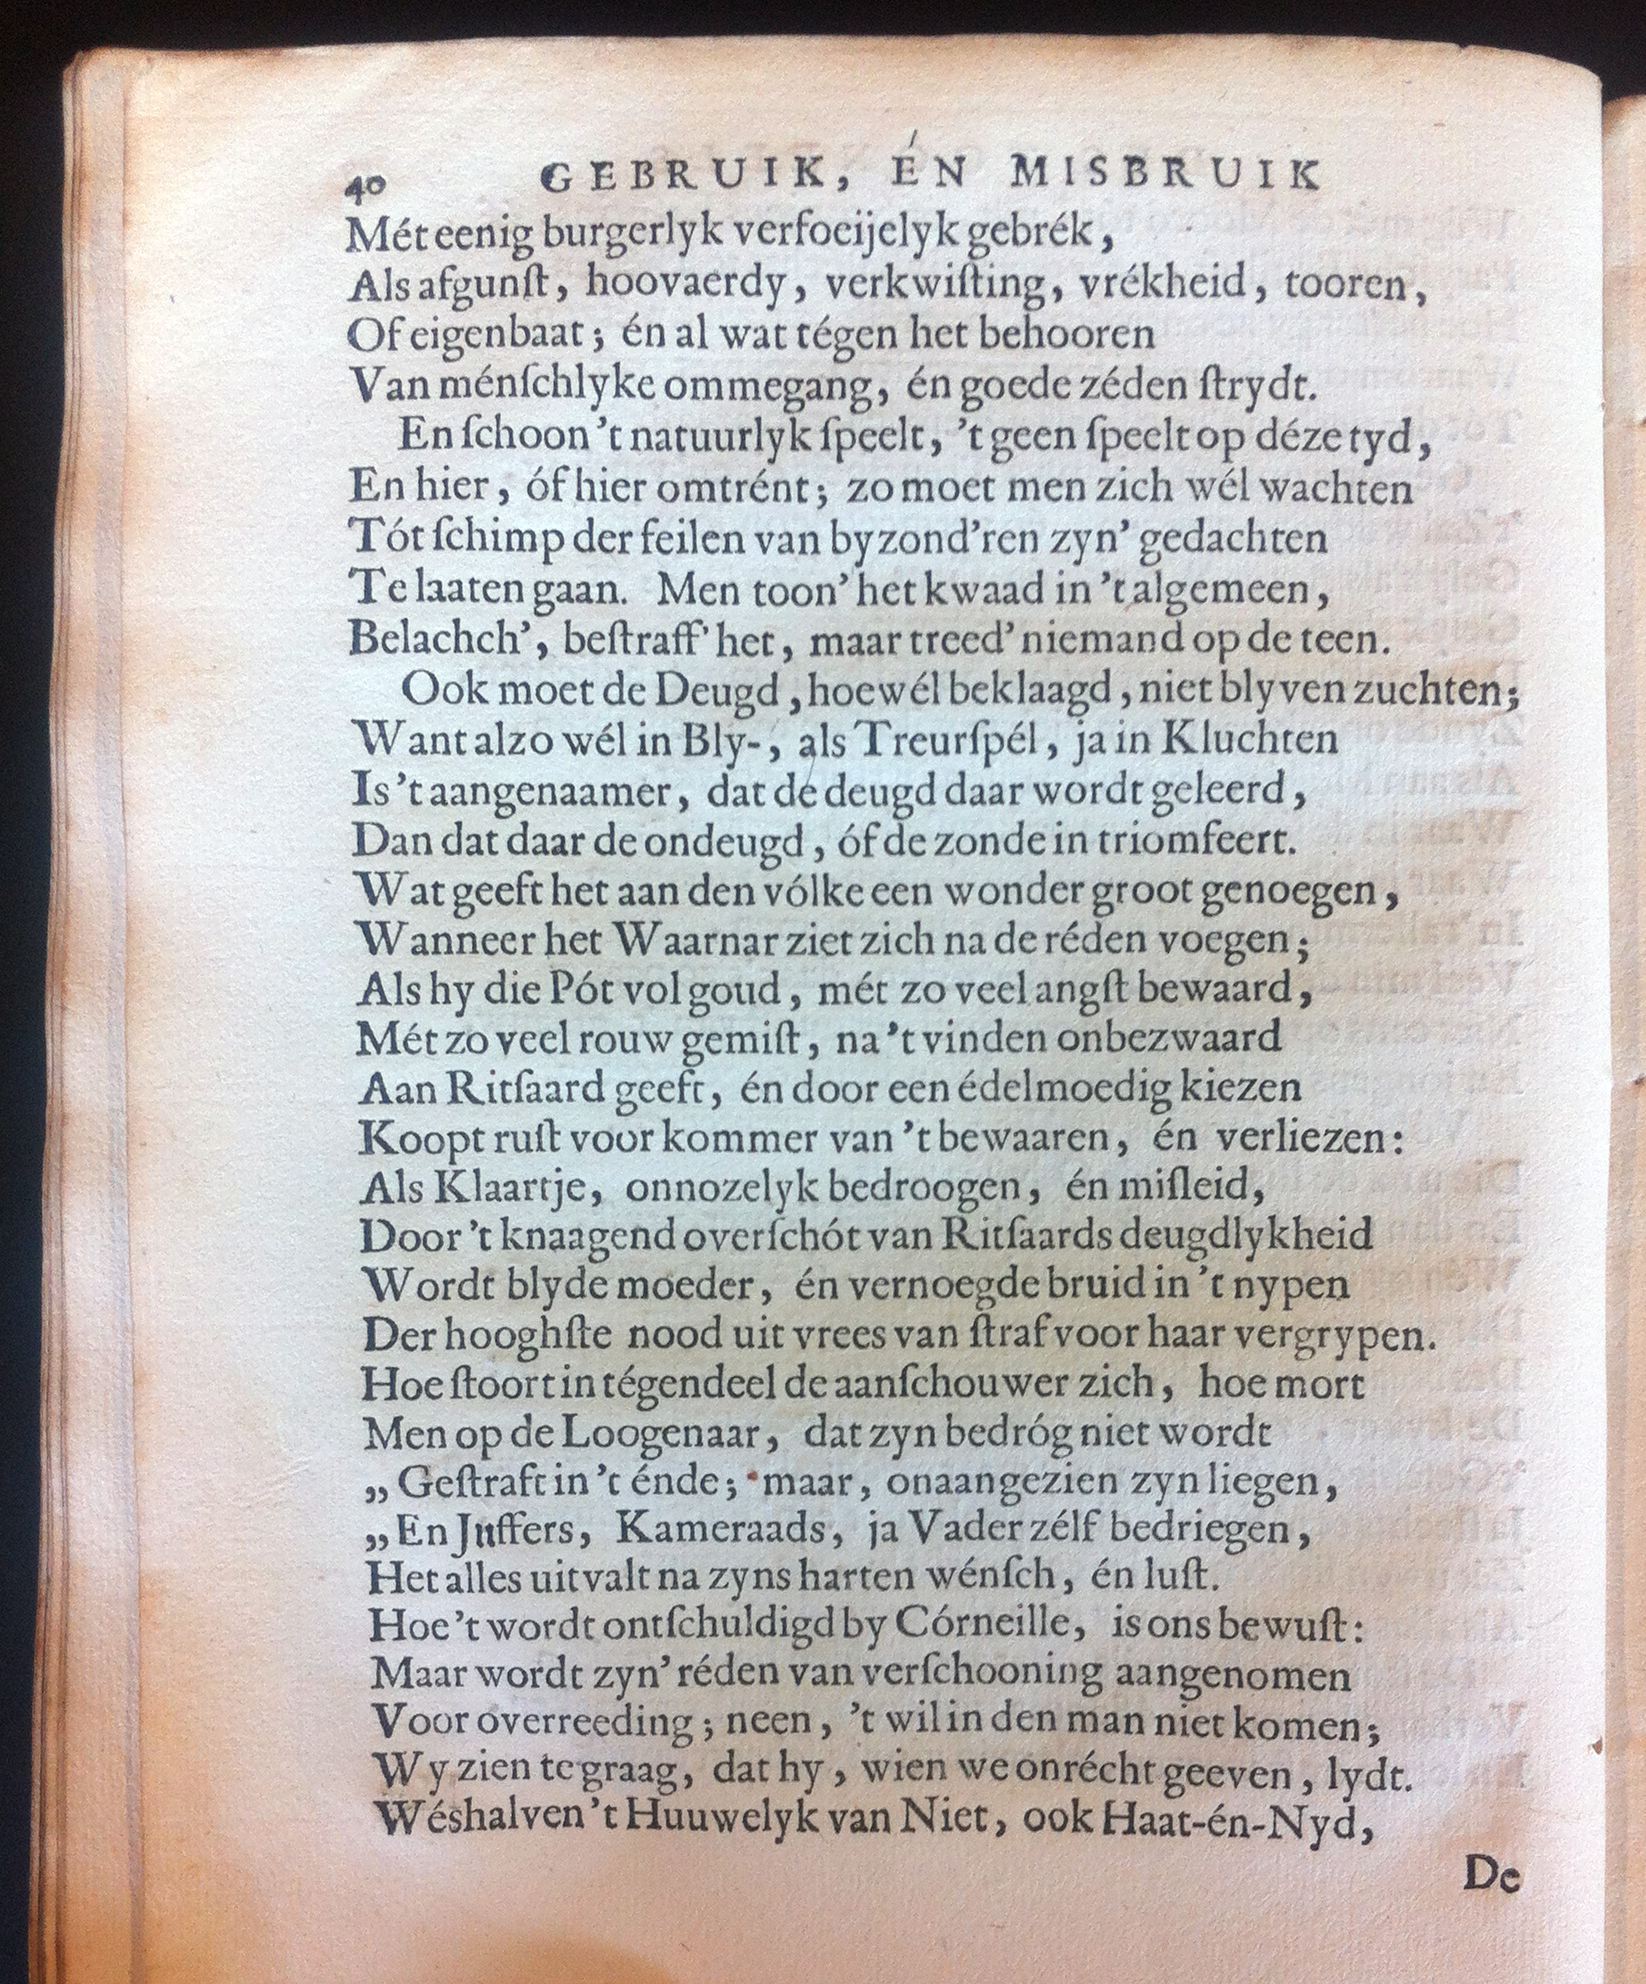 40 GEBRUIK, ÉN MISBRUIK
Mét eenig burgerlyk verfoeijelyk gebrék,
Als afgunſt, hoovaerdy, verkwiſting, vrékheid, tooren,
Of eigenbaat; én al wat tégen het behooren
Van ménſchlyke ommegang, én goede zéden ſtrydt.
En ſchoon 't natuurlyk ſpeelt, 't geen ſpeelt op déze tyd,
En hier, óf hier omtrént; zo moet men zich wél wachten
Tót ſchimp der feilen van byzond'ren zyn' gedachten
Te laaten gaan. Men toon' het kwaad in 't algemeen,
Belachch', beſtraff' het, maar treed' niemand op de teen.
Ook moet de Deugd, hoewél beklaagd, niet blyven zuchten;
Want alzo wél in Bly-, als Treurſpél, ja in Kluchten
Is 't aangenaamer, dat de deugd daar wordt geleerd,
Dan dat daar de ondeugd, óf de zonde in triomfeert.
Wat geeft het aan den vólke een wonder groot genoegen,
Wanneer het Waarnar ziet zich na de réden voegen;
Als hy die Pót vol goud, mét zo veel angſt bewaard,
Mét zo veel rouw gemiſt, na 't vinden onbezwaard
Aan Ritſaard geeft, én door een édelmoedig kiezen
Koopt ruſt voor kommer van 't bewaaren, én verliezen:
Als Klaartje, onnozelyk bedroogen, én miſleid,
Door 't knaagend overſchót van Ritſaards deugdlykheid
Wordt blyde moeder, én vernoegde bruid in 't nypen
Der hooghſte nood uit vrees van ſtraf voor haar vergrypen.
Hoe ſtoort in tégendeel de aanſchouwer zich, hoe mort
Men op de Loogenaar, dat zyn bedróg niet wordt
„ Geſtraft in 't énde; maar, onaangezien zyn liegen,
„ En Juffers, Kameraads, ja Vader zélf bedriegen,
Het alles uitvalt na zyns harten wénſch, én luſt.
Hoe 't wordt ontſchuldigd by Córneille, is ons bewuſt:
Maar wordt zyn' réden van verſchooning aangenomen
Voor overreeding; neen, 't wil in den man niet komen;
Wy zien te graag, dat hy, wien we onrécht geeven, lydt.
Wéshalven 't Huuwelyk van Niet, ook Haat-én-Nyd,
De